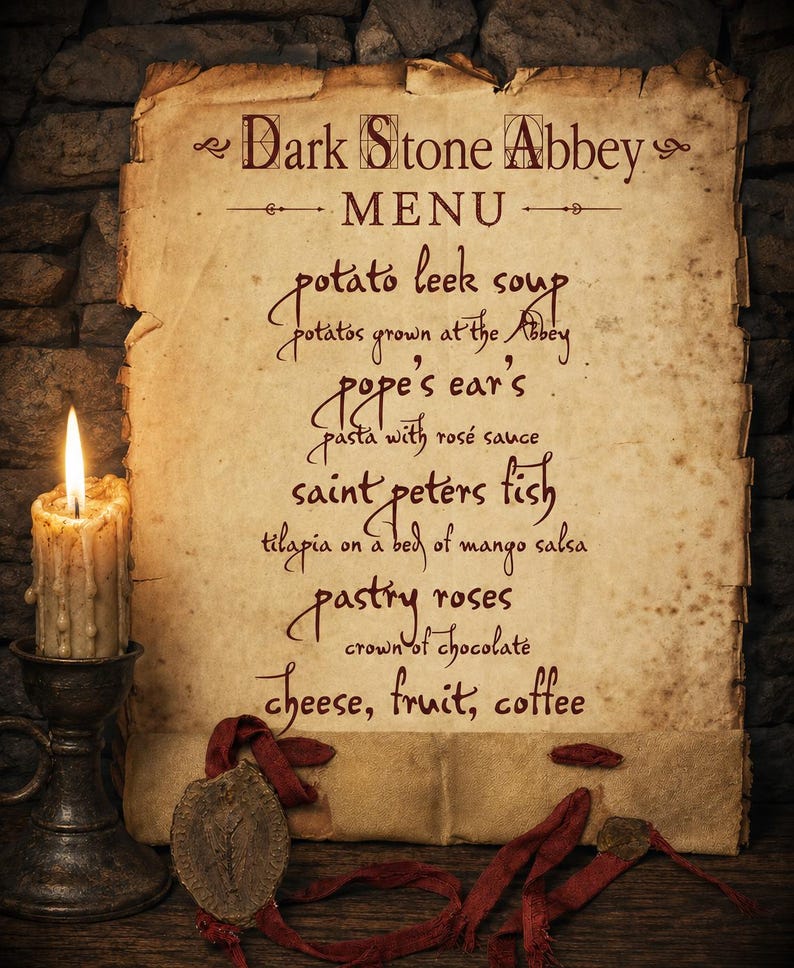 Dark Stone Abbey
MENU
potato leek soup
potatos grown at the Abbey
pope's ear's
pasta with rosé sauce
saint peters fish
tilapia on a bed of mango salsa
pastry roses
crown of chocolate
cheese, fruit, coffee